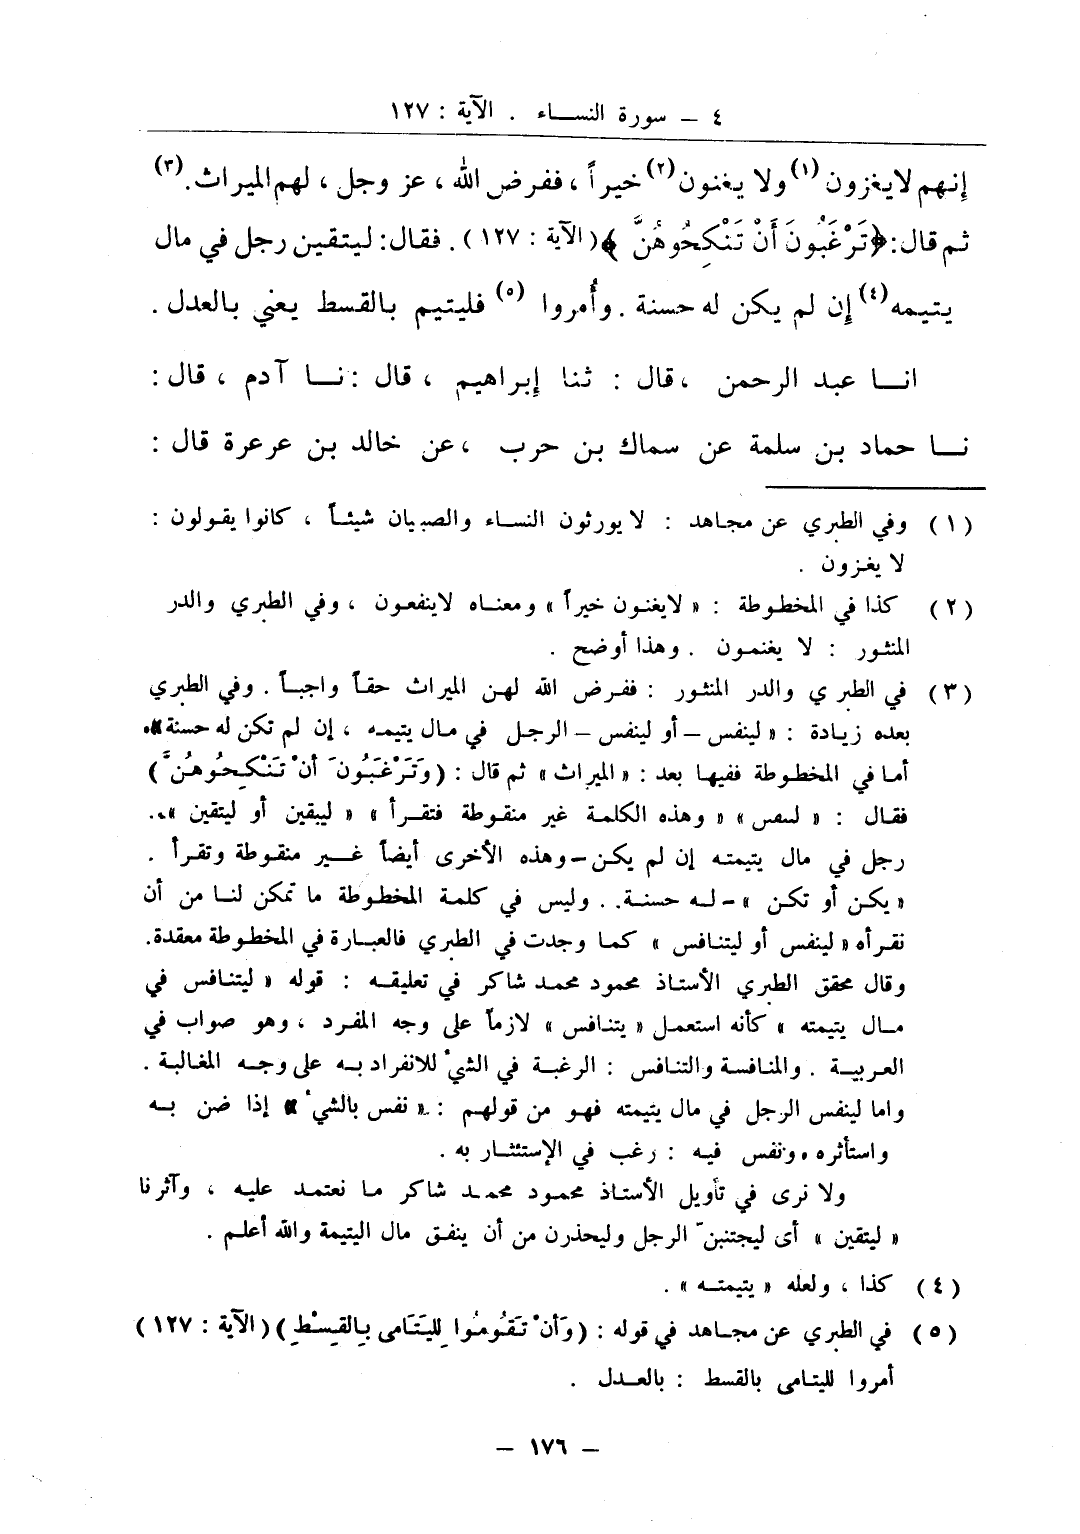 ٤ – سورة النساء . الآية : ١٢٧
إنهم لا يغزون (١) ولا يغنون (٢) خيراً ، ففرض الله ، عز وجل ، لهم الميراث. (٣)
ثم قال : ﴿تَرْغَبُونَ أَنْ تَنْكِحُوهُنَّ﴾ (الآية : ١٢٧) . فقال : ليتقين رجل في مال
يتيمه (٤) إن لم يكن له حسنة . وأُمروا (٥) فليتيم بالقسط يعني بالعدل .
انا عبد الرحمن ، قال : ثنا إبراهيم ، قال : نا آدم ، قال :
نا حماد بن سلمة عن سماك بن حرب ، عن خالد بن عرعرة قال :
(١) وفي الطبري عن مجاهد : لا يورثون النساء والصبيان شيئاً ، كانوا يقولون :
لا يغزون .
(٢) كذا في المخطوطة : « لايغنون خيراً » ومعناه لاينفعون ، وفي الطبري والدر
المنثور : لا يغنمون . وهذا أوضح .
(٣) في الطبري والدر المنثور : ففرض الله لهن الميراث حقاً واجباً . وفي الطبري
بعده زيادة : « لينفس – أو لينفس – الرجل في مال يتيمه ، إن لم تكن له حسنة ».
أما في المخطوطة ففيها بعد : « الميراث » ثم قال : (وَتَرْغَبُونَ أَنْ تَنْكِحُوهُنَّ)
فقال : « لسفس » « وهذه الكلمة غير منقوطة فتقرأ » « ليبقين أو ليتقين »..
رجل في مال يتيمته إن لم يكن – وهذه الأخرى أيضاً غير منقوطة وتقرأ .
« يكن أو تكن » – له حسنة. . وليس في كلمة المخطوطة ما تمكن لنا من أن
نقرأه « لينفس أو ليتنافس » كما وجدت في الطبري فالعبارة في المخطوطة معقدة.
وقال محقق الطبري الأستاذ محمود محمد شاكر في تعليقه : قوله « ليتنافس في
مال يتيمته » كأنه استعمل « يتنافس » لازماً على وجه المفرد ، وهو صواب في
العربية . والمنافسة والتنافس : الرغبة في الشيْ للانفراد به على وجه المغالبة .
واما لينفس الرجل في مال يتيمته فهو من قولهم : « نفس بالشيْ » إذا ضن به
واستأثره ، ونفس فيه : رغب في الإستئثار به .
ولا نرى في تأويل الأستاذ محمود محمد شاكر ما نعتمد عليه ، وآثرنا
« ليتقين » أى ليجتنبنّ الرجل وليحذرن من أن ينفق مال اليتيمة والله أعلم .
(٤) كذا ، ولعله « يتيمته » .
(٥) في الطبري عن مجاهد في قوله : (وَأَنْ تَقُومُوا لِلْيَتَامَى بِالقِسْطِ) (الآية : ١٢٧)
أمروا لليتامى بالقسط : بالعدل .
– ١٧٦ –